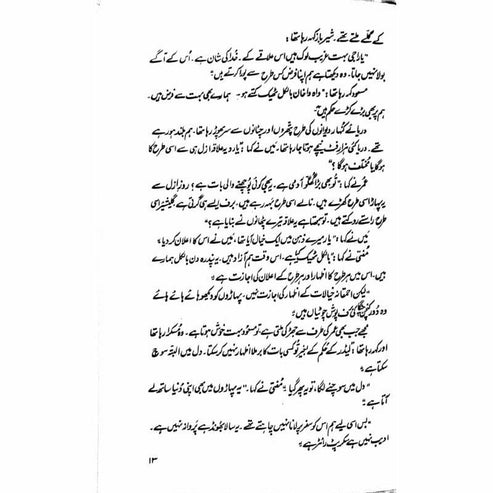 کے محلے ملتے تھے۔ شہباز کہہ رہا تھا :
"یارا جی بہت غریب لوگ ہیں اس علاقے کے۔ خدا کی شان ہے۔ اُس کے آگے
بولا نہیں جاتا۔ وہ دیکھتا ہے ہم اپنا فرض کس طرح سے پورا کرتے ہیں"
مسعود کہہ رہا تھا : "واہ واہ خان بالکل ٹھیک کہتے ہو۔ ہمارے بھی بہت سے فرض ہیں۔
ہم پر بھی بڑے کڑے حکم ہیں"
دریائے کنہار دیوانوں کی طرح پتھروں اور چٹانوں سے سر پھوڑ رہا تھا۔ ہم بلند ہو رہے
تھے۔ دریا کئی ہزار فٹ نیچے ہوتا جا رہا تھا۔ میں نے کہا : "یارو یہ علاقہ ازل ہی سے اسی طرح کا
ہو گا یا مختلف ہو گا ؟"
عمر نے کہا : "تُو بھی بڑا گھگّو آدمی ہے۔ یہ بھی کوئی پوچھنے والی بات ہے ؟ روزِ ازل سے
یہ پہاڑ اسی طرح کھڑے ہیں۔ نالے اسی طرح بہہ رہے ہیں۔ برف ایسے ہی گرتی ہے، گلیشیر اسی
طرح راستے روکتے ہیں۔ تُو سمجھتا ہے یہ علاقہ تیرے پٹھانوں نے بنایا ہے ؟"
میں نے کہا : "یار میرے ذہن میں ایک خیال آیا تھا، میں نے اس کا اعلان کر دیا"
مُفتی نے کہا : "بالکل ٹھیک کیا ہے۔ اس وقت ہم آزاد ہیں۔ یہ پندرہ دن بالکل ہمارے
ہیں۔ اس میں ہر طرح کا اظہار اور ہر طرح کے اعلان کی اجازت ہے"
"لیکن احمقانہ خیالات کے اظہار کی اجازت نہیں۔ پہاڑوں کو دیکھو ہائے ہائے ہائے
وہ دُور کی کف پوش چوٹیاں ہیں"
مجھے جب بھی عمر کی طرف سے جھڑکی ملتی ہے تو مسعود بہت خوش ہوتا ہے۔ وہ مُسکرا رہا تھا
اور کہہ رہا تھا : "لیڈر کے حکم کے بغیر تُو کسی بات کا برملا اظہار نہیں کر سکتا۔ دل میں البتہ سوچ
سکتا ہے"
"دل میں سوچنے لگا، تو یہ پھر گیا" مُفتی نے کہا۔ "یہ پہاڑوں میں بھی اپنی دُنیا ساتھ لے
آتا ہے"
"بس اسی لیے ہم اس کو سفر پر لانا نہیں چاہتے تھے۔ یہ سالا بھونڈ ہے پروانہ نہیں ہے۔
ادیب نہیں ہے سکرپٹ رائٹر ہے"
۱۳